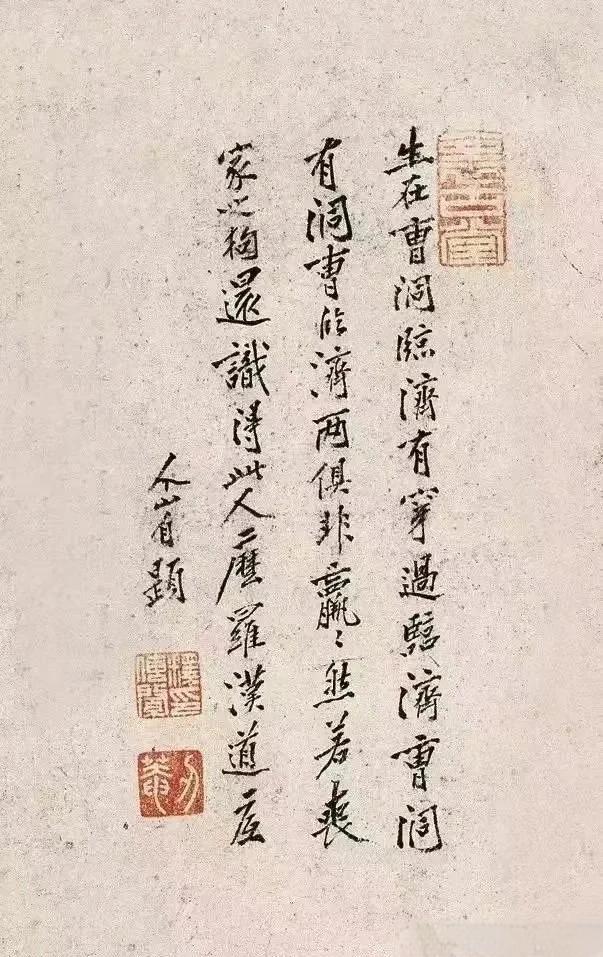 生在曹洞臨濟有穿過臨濟曹洞
有洞曹臨濟兩俱非羸〻然若喪
家之狗還識得此人麼羅漢道底
个山自題
刃菴